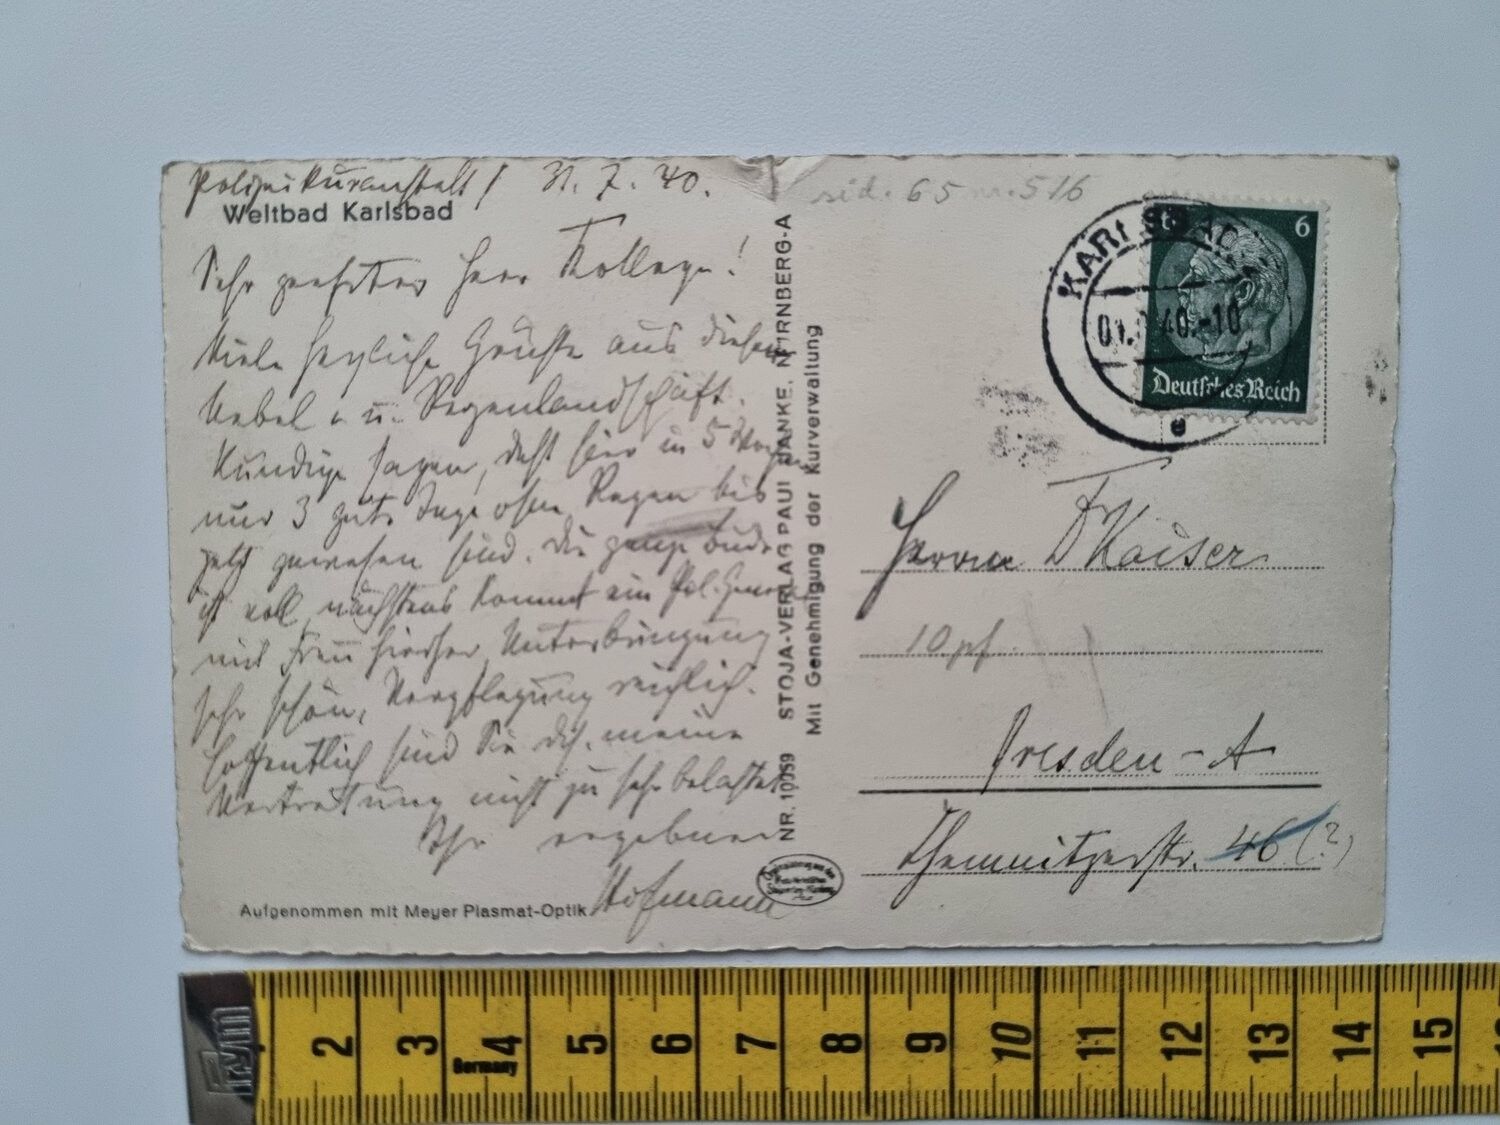 Polizeikuranstalt, 31. 7. 40.
Weltbad Karlsbad
Sehr geehrter Herr Kollege!
Viele herzliche Grüße aus dieser
Nebel- u. Regenlandschaft.
Kundige sagen, daß hier in 5 Wochen
nur 3 gute Tage ohne Regen bis
jetzt gewesen sind. Die ganze Bude
ist voll, nächstens kommt ein Pol. General
mit Frau hierher, Unterbringung
sehr schön, Verpflegung reichlich.
Hoffentlich sind Sie dch. meine
Vertretung nicht zu sehr belastet.
Ihr ergebener
Hofmann
Aufgenommen mit Meyer Plasmat-Optik
NR. 10059 STOJA-VERLAG PAUL JANKE, NÜRNBERG-A
Mit Genehmigung der Kurverwaltung
sid. 65 nr. 516
KARLSBAD
40.-10
e
6
Deutsches Reich
Herrn Dr Kaiser
10 pf.
Dresden-A
Chemnitzerstr. 46 (?)
2 3 4 5 6 7 8 9 10 11 12 13 14 15
Germany